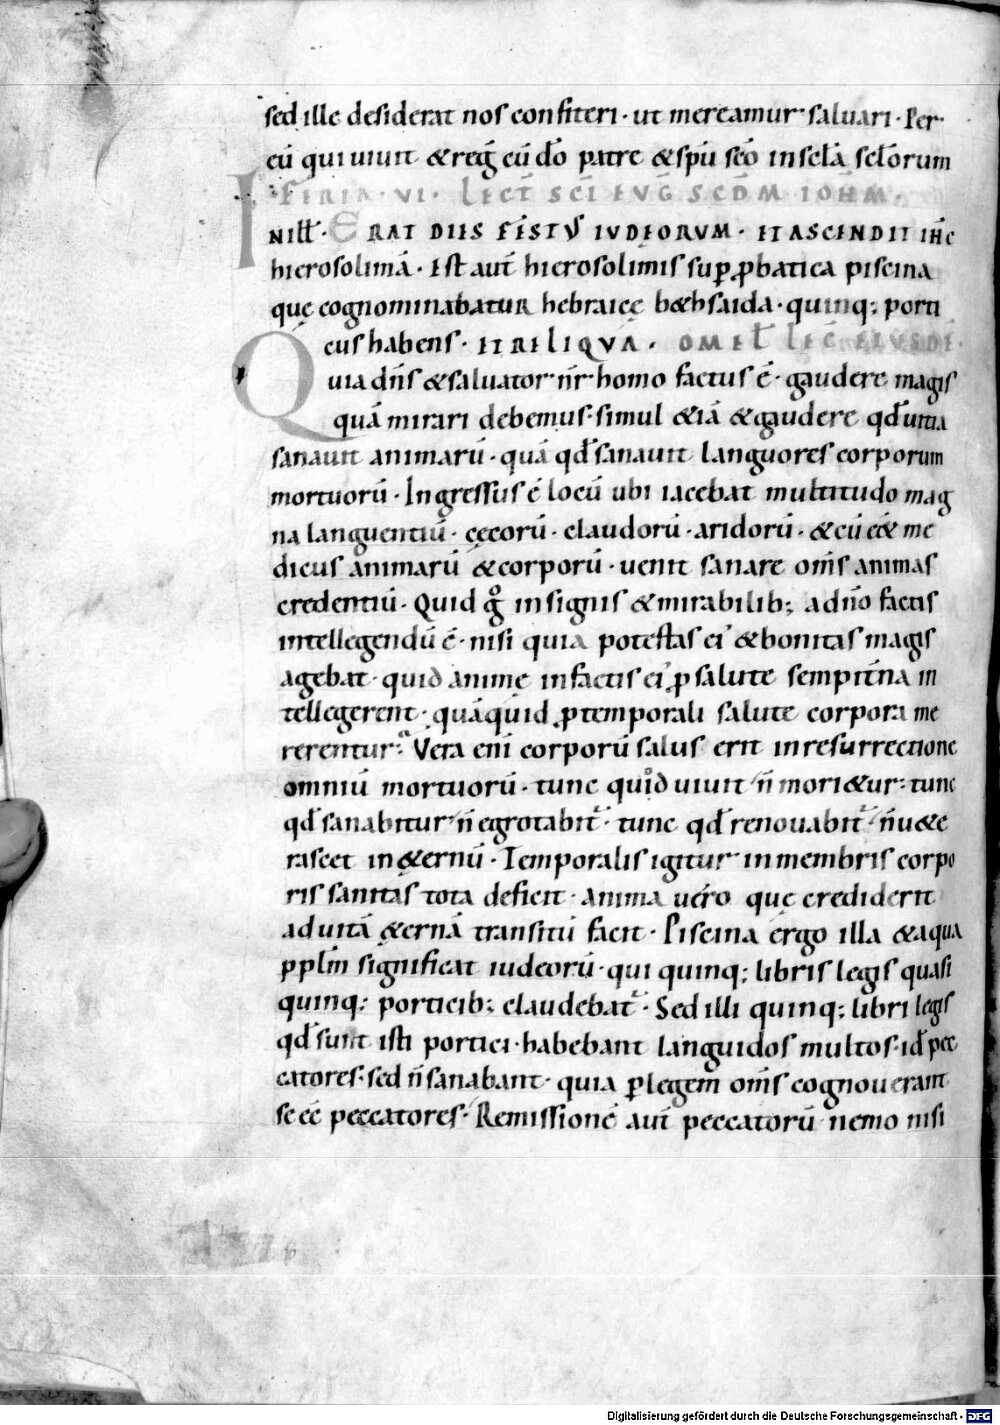 sed ille desiderat nos confiteri · ut mereamur saluari · Per
eū qui uiuit & reḡ cū dō patre & spū scō in sclā sclorum
FERIA · VI · LECT̄ SCĪ EVG̅ SCDM̄ IOHM̄ ·
IN ILL̄ · ERAT DIES FESTVS IVDEORVM · ET ASCENDIT IHC̄
hierosolimā · Est aut̄ hierosolimis sup ꝓbatica piscina
quę cognominabatur hebraicę b&hsaida · quinq; porti
cus habens · ET RELIQVA · OMEL̄ LEC̄ EIVSDĒ ·
Quia dn̄s & saluator nr̄ homo factus ē · gaudere magis
quā mirari debemus · simul & iā & gaudere qd̄ uitia
sanauit animarū · quā qd̄ sanauit languores corporum
mortuorū · Ingressus ē locū ubi iacebat multitudo mag
na languentiū · cęcorū · claudorū · aridorū · & cū eē& me
dicus animarū & corporū · uenit sanare om̄s animas
credentiū · Quid gͦ in signis & mirabilib; a dn̄o factis
intellegendū ē · nisi quia potestas ei' & bonitas magis
agebat · quid animę in factis ei' ꝓ salute sempit̄na in
tellegerent · quāquid ꝓ temporali salute corpora me
rerentur · Vera eni corporū salus erit in resurrectione
omniū mortuorū · tunc quod uiuit n̄ mori&ur · tunc
qd̄ sanabitur n̄ egrotabit̄ · tunc qd̄ renouabit̄ · n̄ u&e
rascet in &ernū · Temporalis igitur in membris corpo
ris sanitas tota deficit · anima uero quę crediderit
ad uitā &ernā transitū facit · Piscina ergo illa & aqua
ppl̄m significat iudeorū · qui quinq; libris legis quasi
quinq; porticib; claudebat̄ · Sed illi quinq; libri legis
qd̄ sunt isti portici · habebant languidos multos · id̄ pec
catores · sed n̄ sanabant · quia ꝑ legem om̄s cognouerant
se eē peccatores · Remissionē aut̄ peccatorū nemo nisi
Digitalisierung gefördert durch die Deutsche Forschungsgemeinschaft - DFG